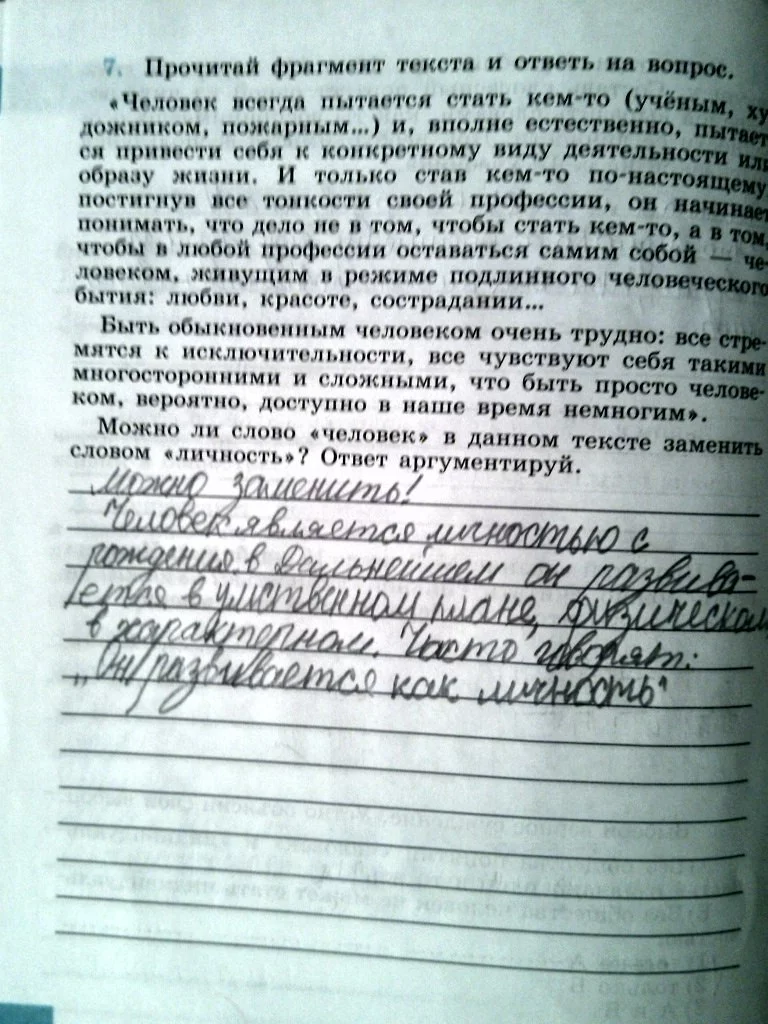 7. Прочитай фрагмент текста и ответь на вопрос.
«Человек всегда пытается стать кем-то (учёным, ху
дожником, пожарным...) и, вполне естественно, пытает
ся привести себя к конкретному виду деятельности или
образу жизни. И только став кем-то по-настоящему
постигнув все тонкости своей профессии, он начинает
понимать, что дело не в том, чтобы стать кем-то, а в том,
чтобы в любой профессии оставаться самим собой — че-
ловеком, живущим в режиме подлинного человеческого
бытия: любви, красоте, сострадании...
Быть обыкновенным человеком очень трудно: все стре-
мятся к исключительности, все чувствуют себя такими
многосторонними и сложными, что быть просто челове-
ком, вероятно, доступно в наше время немногим».
Можно ли слово «человек» в данном тексте заменить
словом «личность»? Ответ аргументируй.
Можно заменить!
Человек является личностью с
рождения, в дальнейшем он развива-
ется в умственном плане, физическом
в характерном. Часто говорят:
„Он развивается как личность"